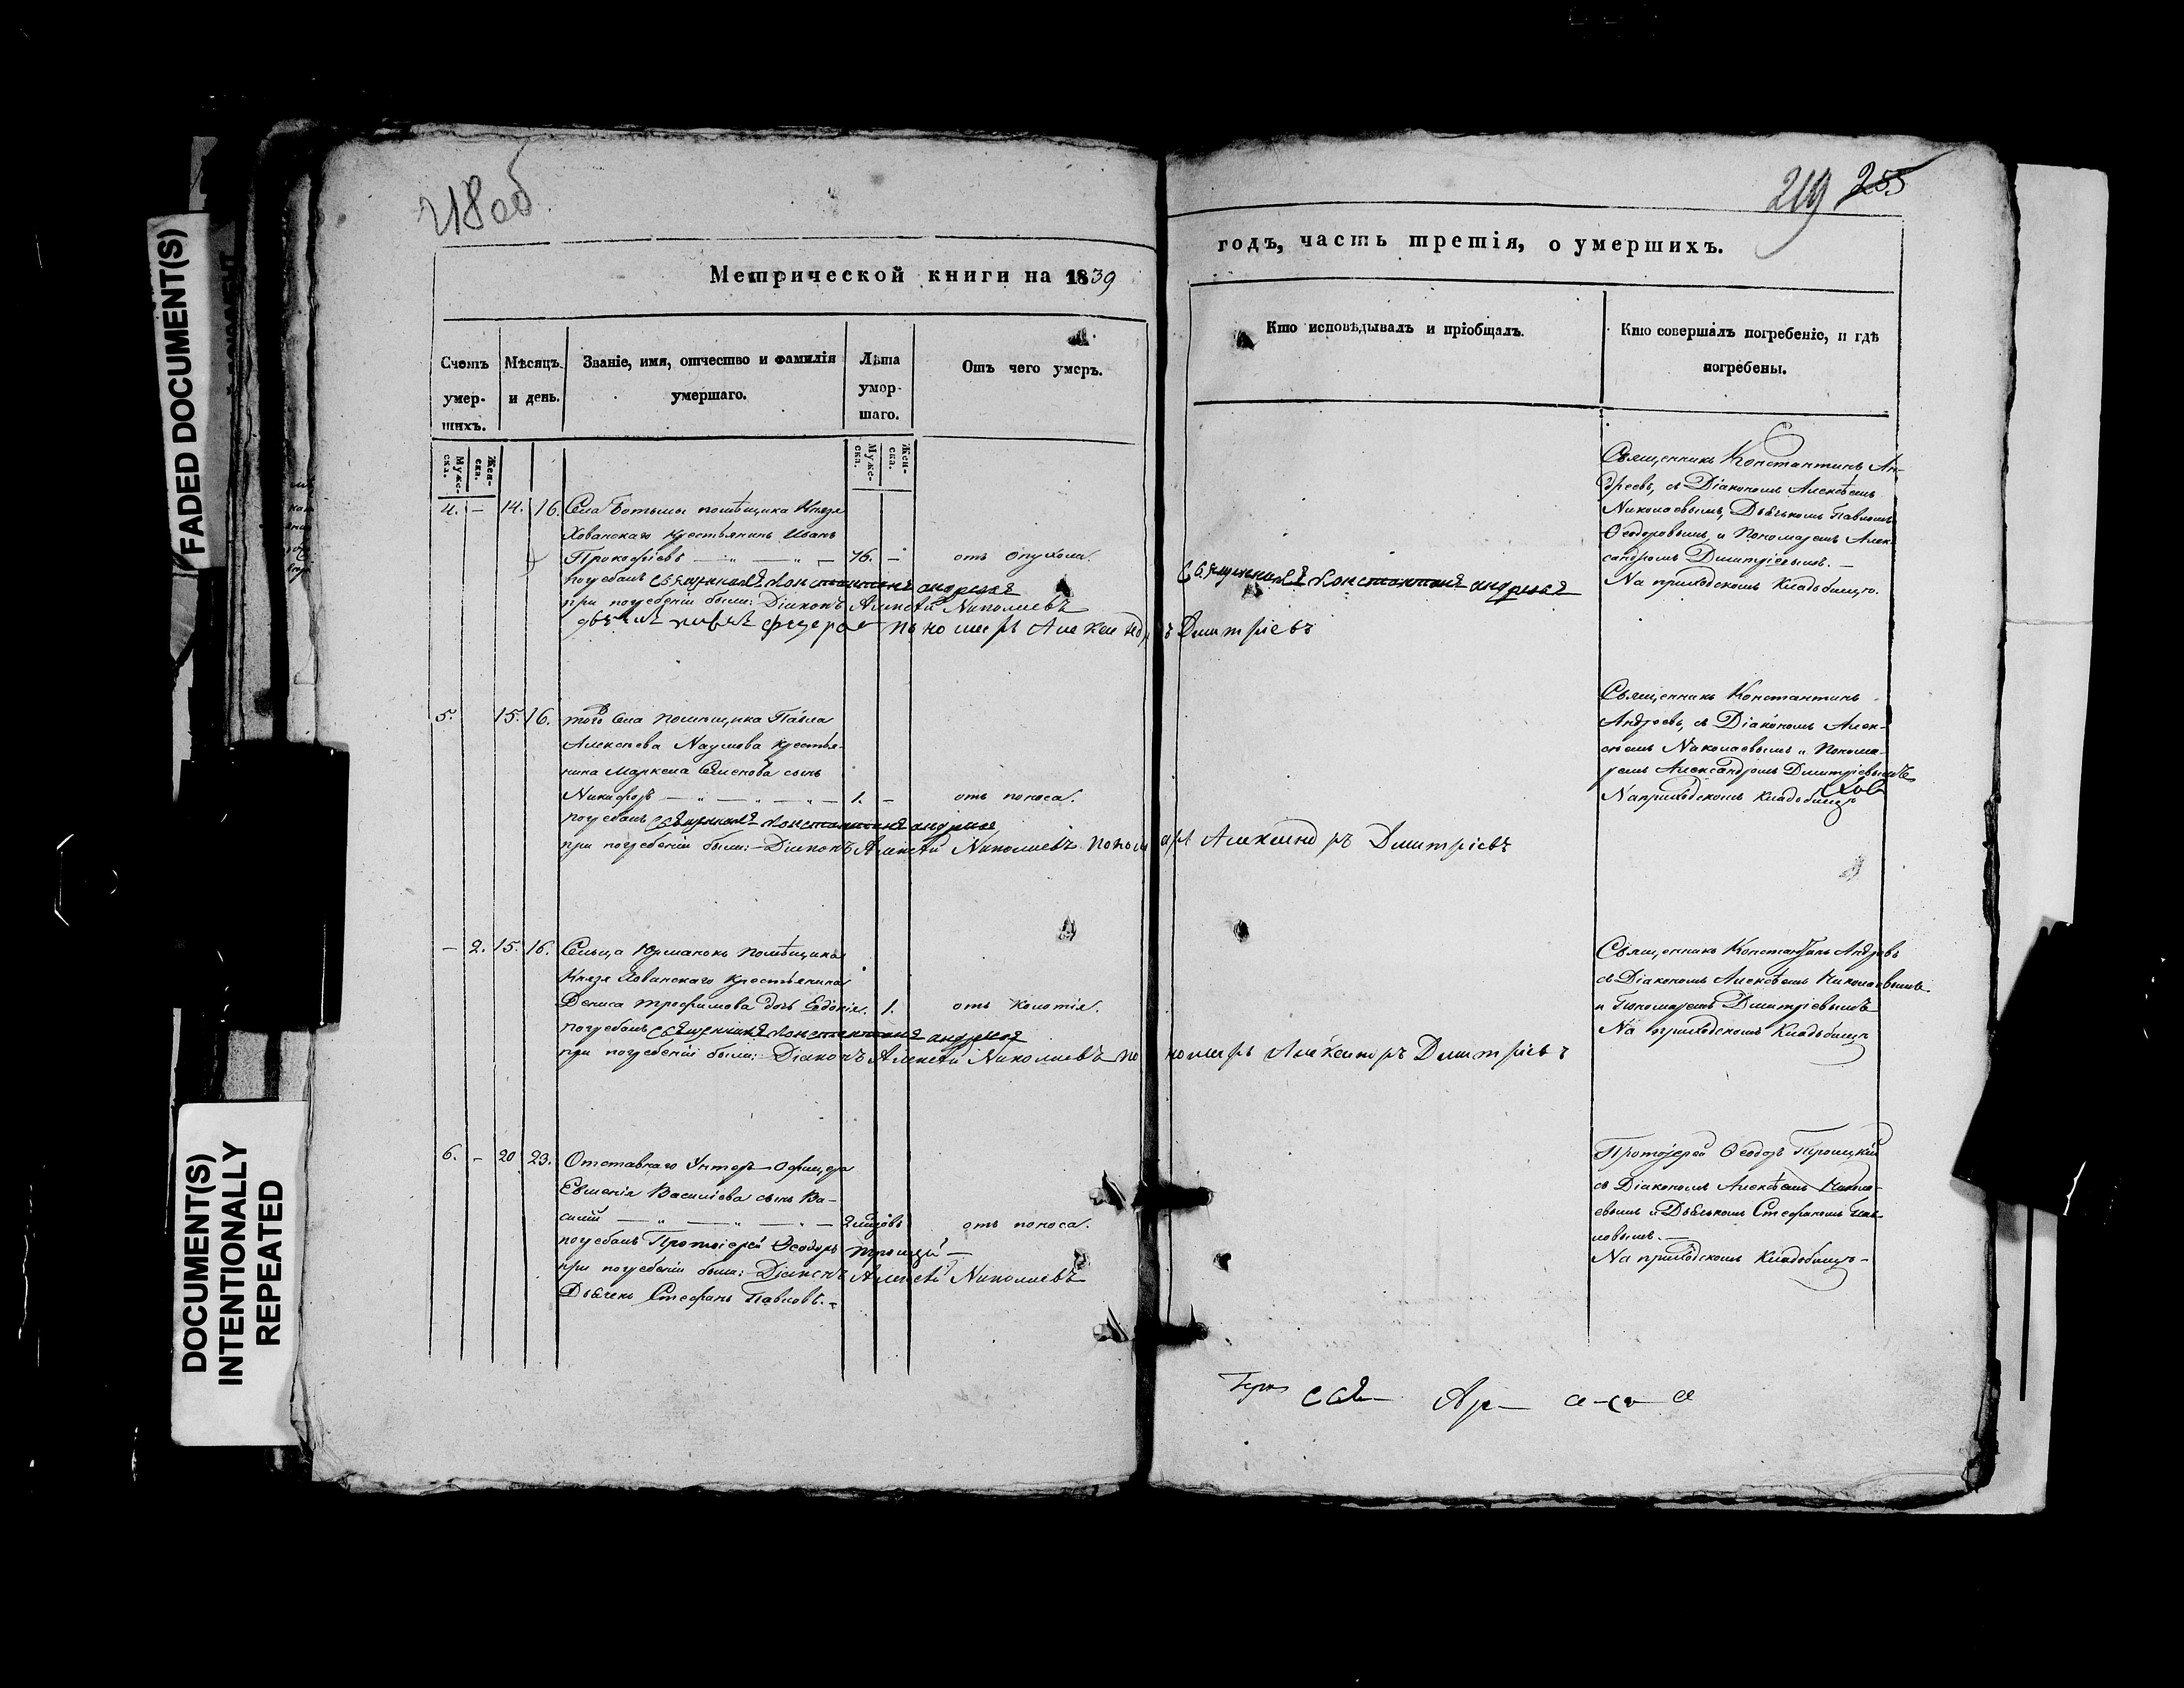 FADED DOCUMENT(S)
DOCUMENT(S)
INTENTIONALLY
REPEATED
218об
Метрической книги на 1839
Счетъ умер-шихъ.
Мѣсяцъ и день.
Званіе, имя, отчество и фамилія умершаго.
Лѣта умер-шаго.
Отъ чего умеръ.
Муже-ска.
Жен-ска.
Муже-ска.
Жен-ска.
4. — 14. 16. Села Ботьмы помѣщика Князя
Хованскаго крестьянинъ Иванъ
Прокофіевъ — „ — „ — 76. — отъ опухоли.
погребалъ священникъ Константинъ андреевъ
при погребеніи были: Діаконъ Алексѣй Николаевъ
пономарь Александръ Дмитріевъ
5. 15. 16. того села помѣщика Павла
Алексѣева Наумова крестья-
нина Маркела Семенова сынъ
Никифоръ — „ — „ — „ — 1. — отъ поноса.
погребалъ священникъ Константинъ андреевъ
при погребеніи были: Діаконъ Алексѣй Николаевъ пономарь Александръ Дмитріевъ
— 2. 15. 16. Сельца Юрманокъ помѣщика
Князя Хованскаго крестьянина
Дениса Трофимова дочь Евдокія. 1. отъ колотія.
погребалъ священникъ Константинъ андреевъ
при погребеніи были: Діаконъ Алексѣй Николаевъ пономарь Александръ Дмитріевъ
6. — 20. 23. Отставнаго Унтеръ-Офицера
Евгенія Васильева сынъ Ва-
силій — „ — „ — „ — отъ поноса.
погребалъ Протоіерей Ѳеодоръ Троицкій —
при погребеніи были: Діаконъ Алексѣй Николаевъ
Дьячекъ Стефанъ Павловъ. —
219 255
годъ, часть третія, о умершихъ.
Кто исповѣдывалъ и пріобщалъ.
Кто совершалъ погребеніе, и гдѣ погребены.
священникъ Константинъ андреевъ
Священникъ Константинъ Ан-
дреевъ, съ Діакономъ Алексѣемъ
Николаевымъ, Дьячкомъ Павломъ
Ѳеодоровымъ, и Пономаремъ Алек-
сандромъ Дмитріевымъ. —
На приходскомъ кладбищѣ.
Священникъ Константинъ
Андреевъ, съ Діакономъ Алек-
сѣемъ Николаевымъ и Понома-
ремъ Александромъ Дмитріевымъ
На приходскомъ кладбищѣ
Священникъ Константинъ Андреевъ
съ Діакономъ Алексѣемъ Николаевымъ
и Пономаремъ Дмитріевымъ
На приходскомъ кладбищѣ
Протоіерей Ѳеодоръ Троицкій
съ Діакономъ Алексѣемъ Никола-
евымъ и Дьячкомъ Стефаномъ Пав-
ловымъ. —
На приходскомъ кладбищѣ —